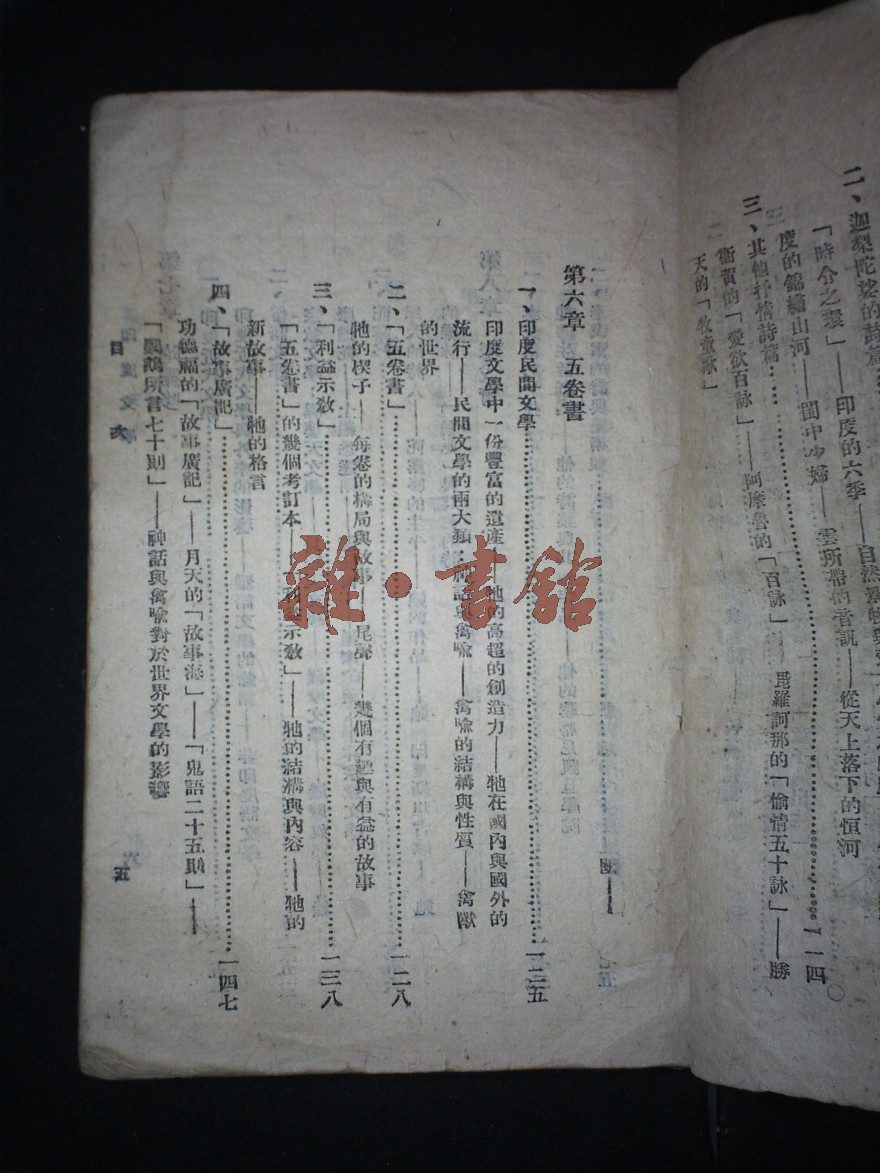 二、迦梨陀娑的詩篇
「時令之環」——印度的六季——自然
度的錦繡山河——閨中少婦——雲所帶的音訊——從天上落下的恒河
三、其他抒情詩篇…………一一四
衛賀的「愛欲百詠」——阿摩魯的「百詠」——毘羅訶那的「偷情五十詠」——勝
天的「牧童詠」
第六章 五卷書
一、印度民間文學…………一二五
印度文學中一份豐富的遺產——牠的高超的創造力——牠在國內與國外的
流行——民間文學的兩大類：神話與禽喩——禽喩的結構與性質——禽獸
的世界
二、「五卷書」…………一二八
牠的楔子——每卷的構局與故事——尾聲——幾個有趣與有益的故事
三、「利益示敎」…………一三八
「五卷書」的幾個考訂本——「利益示敎」——牠的結構與內容——牠的
新故事——牠的格言
四、「故事廣記」…………一四七
功德福的「故事廣記」——月天的「故事海」——「鬼語二十五則」——
「鸚鵡所言七十則」——神話與禽喩對於世界文學的影響
目 次
五
雜·書館